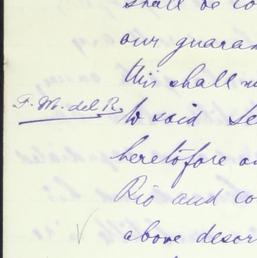 shall be co
our guaran
this shall n
F. W. del R.
to said Se
heretofore o
Rio and co
above descr